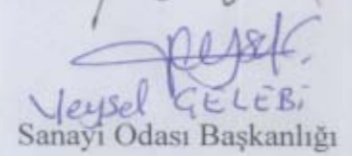 Veysel ÇELEBİ
Sanayi Odası Başkanlığı